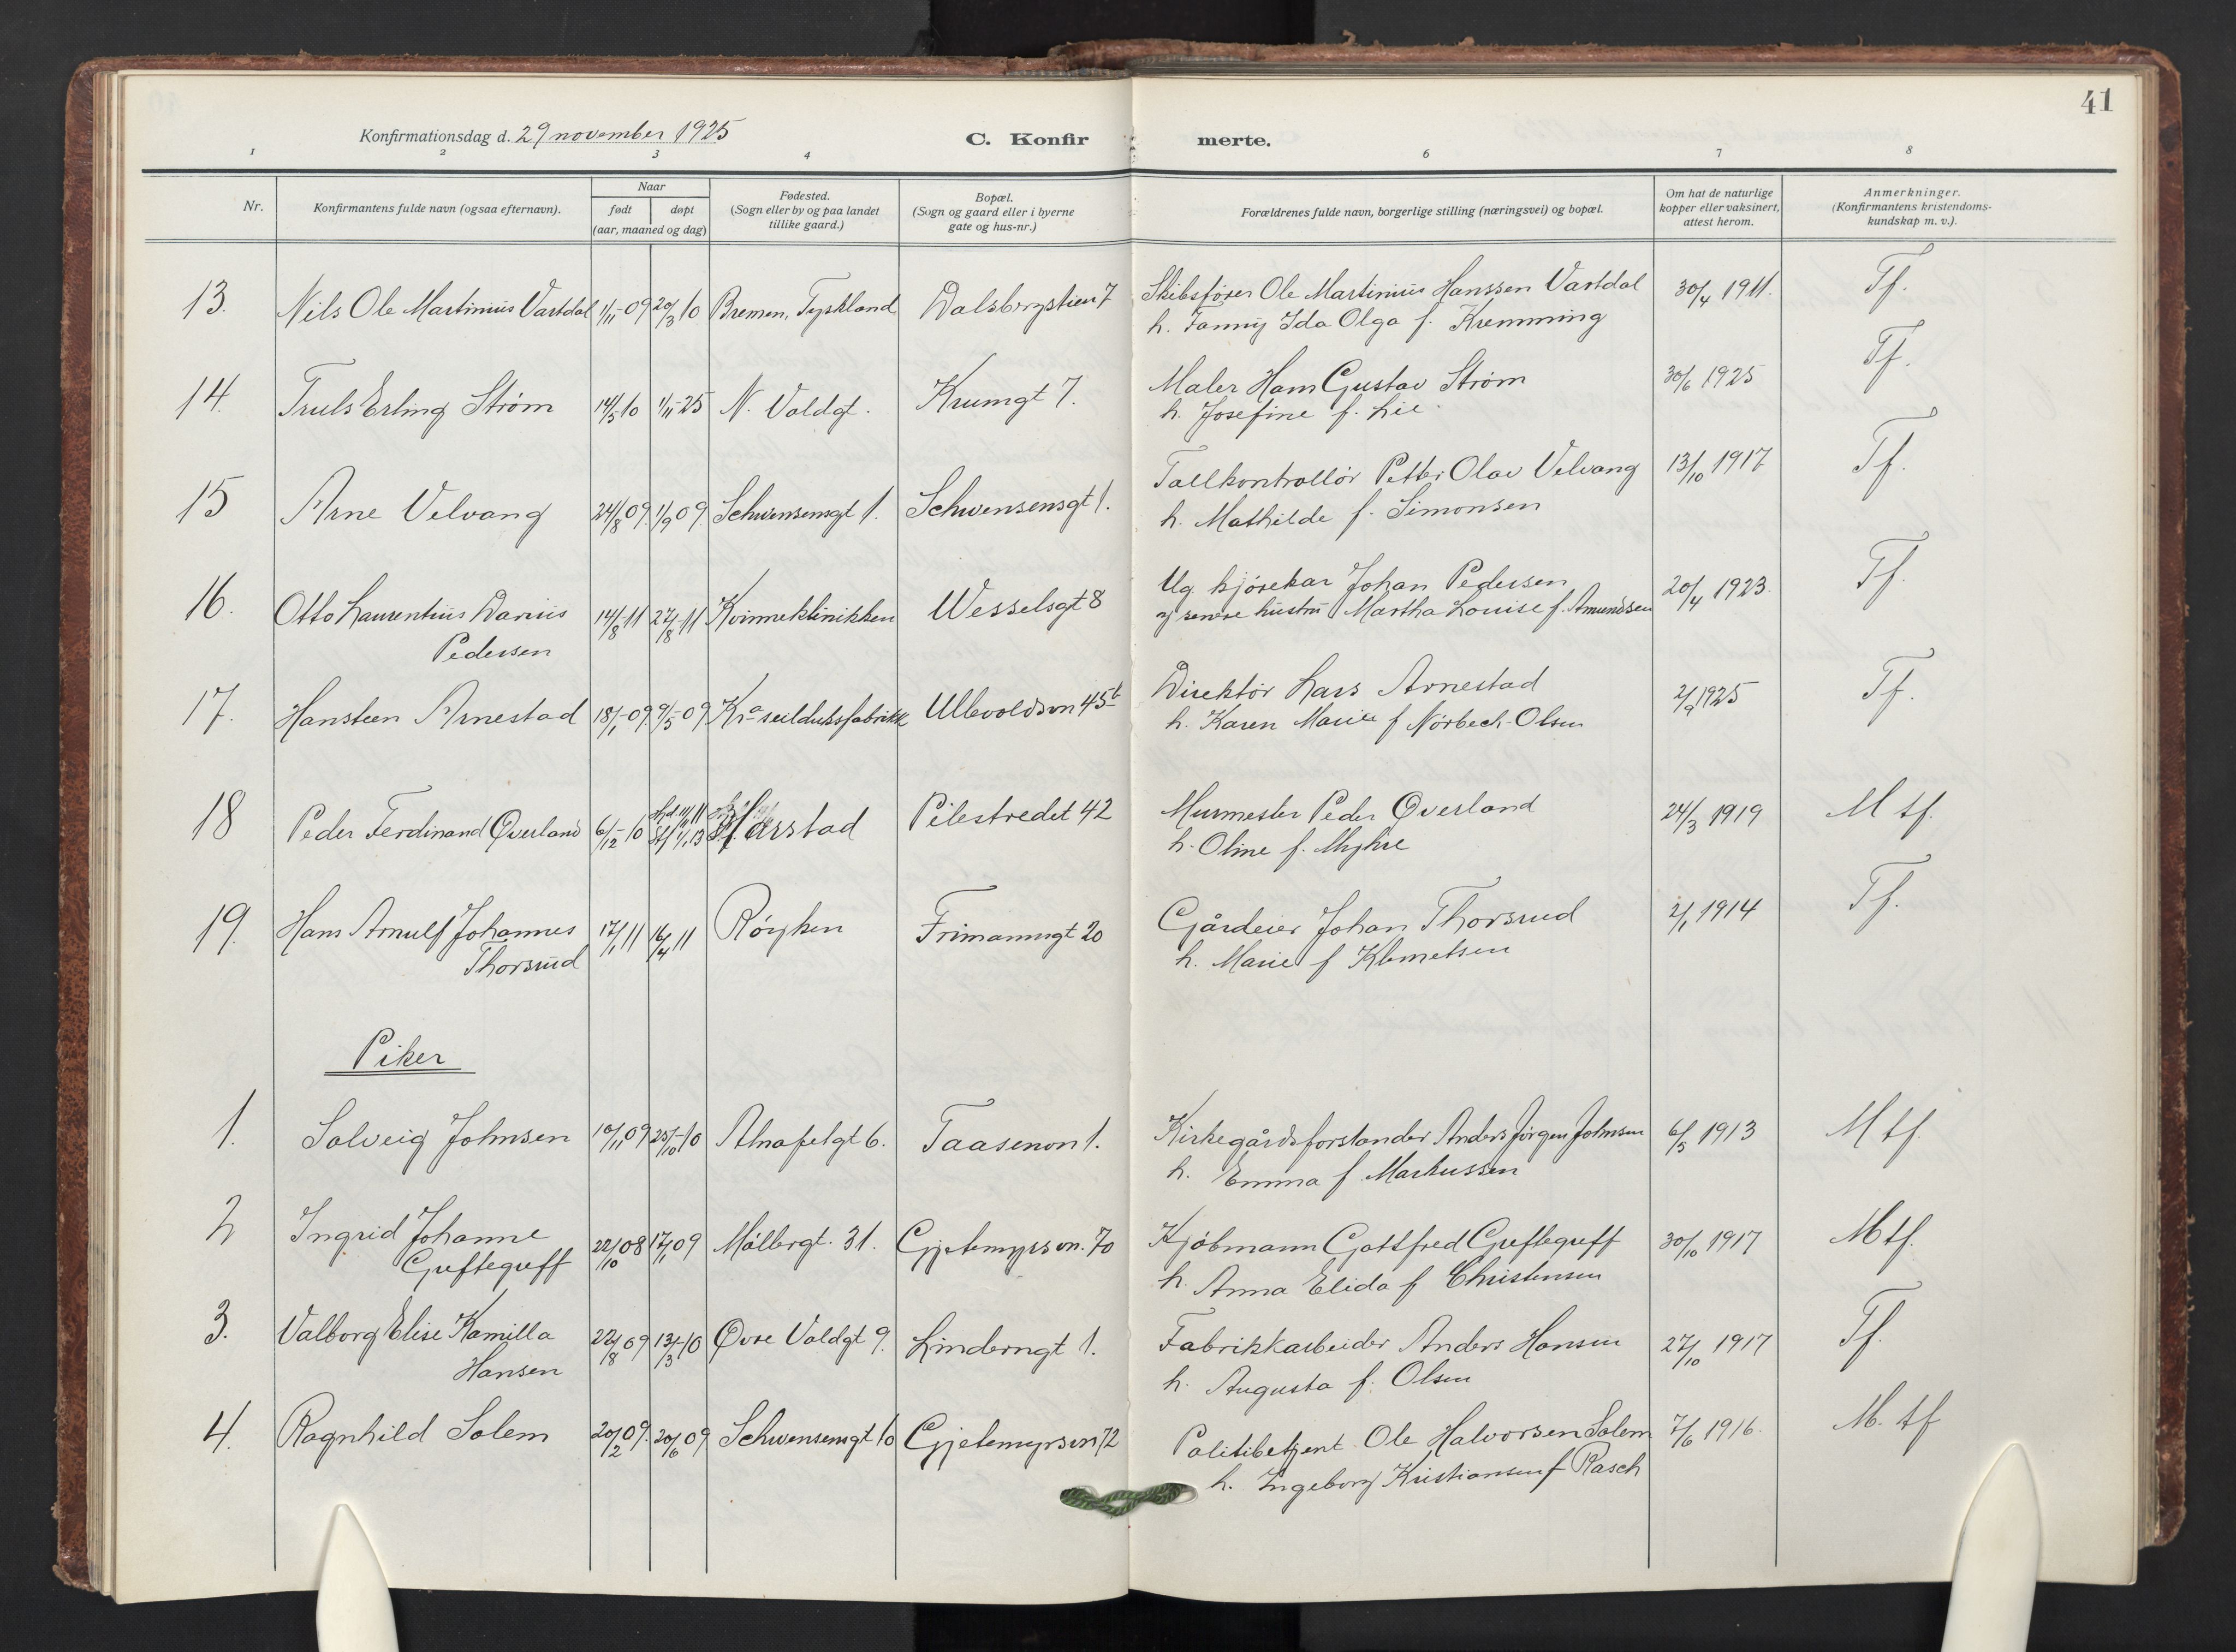 41
Konfirmationsdag d. 29 november 1925
C. Konfir merte.
1 2 3 4 6 7 8
Nr.
Konfirmantens fulde navn (ogsaa efternavn).
Naar
født
døpt
(aar, maaned og dag)
Fødested.
(Sogn eller by og paa landet
tillike gaard.)
Bopæl.
(Sogn og gaard eller i byerne
gate og hus-nr.)
Forældrenes fulde navn, borgerlige stilling (næringsvei) og bopæl.
Om hat de naturlige
kopper eller vaksinert,
attest herom.
Anmerkninger.
(Konfirmantens kristendoms-
kundskap m. v.).
13. Nils Ole Martinius Vartdal 1/11-09 20/3 10 Bremen, Tyskland Dalsbergstien 7 Skibsfører Ole Martinius Hanssen Vartdal 30/4 1911. Tf.
h. Fanny Ida Olga f. Kremming
14. Truls Erling Strøm 14/5 10 1/11-25 N. Voldgt. Krumgt 7. Maler Hans Gustav Strøm 30/6 1925 Tf.
h. Josefine f. Lie
15 Arne Velvang 24/8 09. 1/9 09. Schwensensgt 1. Schwensensgt 1. Tollkontrollør Petter Olav Velvang 13/10 1917 Tf.
h. Mathilde f. Simonsen
16. Otto Laurentius Darius 14/8-11 27/8-11 Kvinneklinikken Wesselsgt 8 Ug. kjørekar Johan Pedersen 20/4 1923. Tf.
Pedersen
og senere hustru Martha Louise f. Amundsen
17. Hansteen Arnestad 18/1-09. 9/5-09 Kr.a seildukssfabrikk Ullevoldsvn 45 b Direktør Lars Arnestad 2/9 1925 Tf.
h. Karen Marie f Nørbech-Olsen
18 Peder Ferdinand Øverland 6/12-10 Harstad Pilestredet 42 Murmester Peder Øverland 24/3 1919 M tf.
h. Oline f. Myhre
19. Hans Arnulf Johannes 17/1 11 16/4 11 Røyken Frimannsgt 20 Gårdeier Johan Thorsrud 2/1 1914 Tf.
Thorsrud
h. Marie f Klemetsen
Piker
1. Solveig Johnsen 10/11 09 25/10-10 Alnafelgt 6. Taasenvn 1. Kirkegårdsforstander Anders Jørgen Johnsen 6/5 1913 M tf.
h. Emma f. Markussen
2 Ingrid Johanne 22/10 08 17/1 09 Møllergt. 31. Gjetemyrsvn. 70 Kjøbmann Gottfred Greftegreff 30/10 1917 M tf.
Greftegreff
h. Anna Elida f Christensen
3. Valborg Elise Kamilla 22/8 09 13/3-10 Øvre Voldgt 9. Linderngt 1. Fabrikkarbeider Anders Hansen 27/10 1917 Tf.
Hansen
h. Augusta f. Olsen
4. Ragnhild Solem 20/2 09. 20/6 09 Schwensensgt 10 Gjetemyrsvn 72 Politibetjent Ole Halvorsen Solem 7/6 1916. M. tf
h. Ingeborg Kristiansen f Rasch